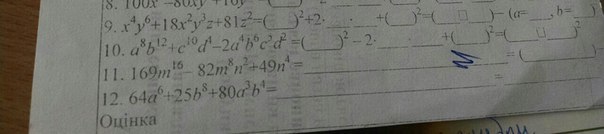 8. 100x² – 80xy + 16y²
9. x⁴y⁶+18x²y³z+81z²=(___)²+2·___·___+(___)²=(___□___)– (a=___, b=___)
10. a⁸b¹²+c¹⁰d⁴–2a⁴b⁶c⁵d²=(___)² – 2·___·___+(___)²=(___□___)²
11. 169m¹⁶– 82m⁸n²+49n⁴=___=(___)
12. 64a⁶+25b⁸+80a³b⁴=___=
Оцінка